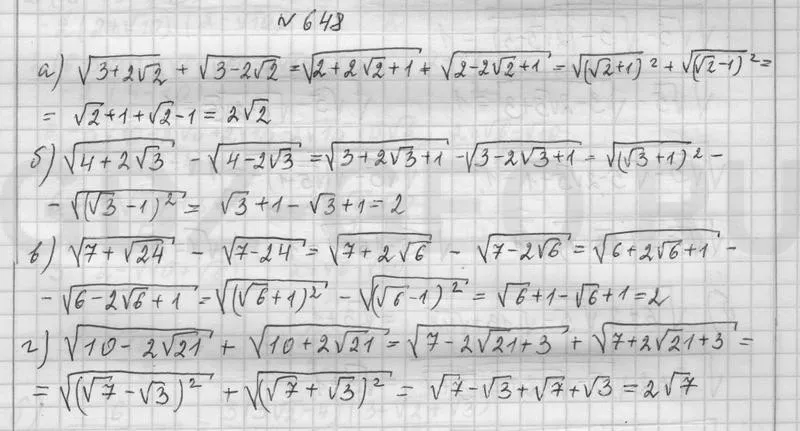 № 648
а) √(3+2√2) + √(3-2√2) = √(2+2√2+1) + √(2-2√2+1) = √((√2+1)²) + √((√2-1)²) =
= √2+1+√2-1 = 2√2
б) √(4+2√3) - √(4-2√3) = √(3+2√3+1) - √(3-2√3+1) = √((√3+1)²) -
- √((√3-1)²) = √3+1-√3+1=2
в) √(7+√24) - √(7-24) = √(7+2√6) - √(7-2√6) = √(6+2√6+1) -
- √(6-2√6+1) = √((√6+1)²) - √((√6-1)²) = √6+1-√6+1=2
г) √(10-2√21) + √(10+2√21) = √(7-2√21+3) + √(7+2√21+3) =
= √((√7-√3)²) + √((√7+√3)²) = √7-√3+√7+√3 = 2√7